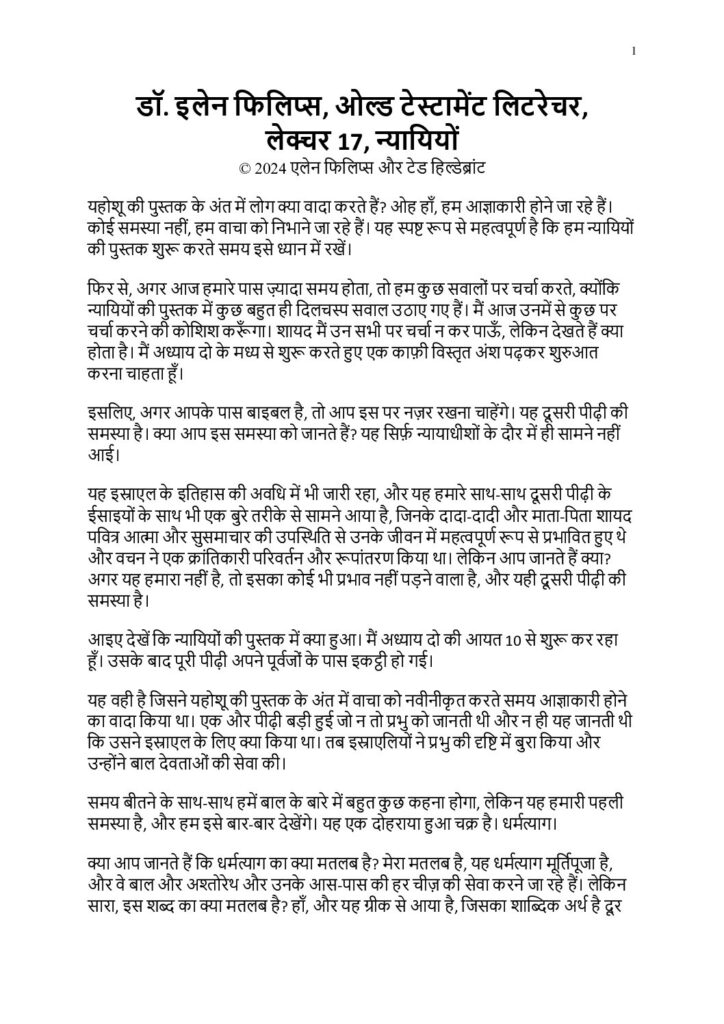 1
डॉ. इलेन फिलिप्स, ओल्ड टेस्टामेंट लिटरेचर,
लेक्चर 17, न्यायियों
© 2024 एलेन फिलिप्स और टेड हिल्डेब्रांट
यहोशू की पुस्तक के अंत में लोग क्या वादा करते हैं? ओह हाँ, हम आज्ञाकारी होने जा रहे हैं।
कोई समस्या नहीं, हम वाचा को निभाने जा रहे हैं। यह स्पष्ट रूप से महत्वपूर्ण है कि हम न्यायियों
की पुस्तक शुरू करते समय इसे ध्यान में रखें।
फिर से, अगर आज हमारे पास ज़्यादा समय होता, तो हम कुछ सवालों पर चर्चा करते, क्योंकि
न्यायियों की पुस्तक में कुछ बहुत ही दिलचस्प सवाल उठाए गए हैं। मैं आज उनमें से कुछ पर
चर्चा करने की कोशिश करूँगा। शायद मैं उन सभी पर चर्चा न कर पाऊँ, लेकिन देखते हैं क्या
होता है। मैं अध्याय दो के मध्य से शुरू करते हुए एक काफ़ी विस्तृत अंश पढ़कर शुरुआत
करना चाहता हूँ।
इसलिए, अगर आपके पास बाइबल है, तो आप इस पर नज़र रखना चाहेंगे। यह दूसरी पीढ़ी की
समस्या है। क्या आप इस समस्या को जानते हैं? यह सिर्फ़ न्यायाधीशों के दौर में ही सामने नहीं
आई।
यह इस्राएल के इतिहास की अवधि में भी जारी रहा, और यह हमारे साथ-साथ दूसरी पीढ़ी के
ईसाइयों के साथ भी एक बुरे तरीके से सामने आया है, जिनके दादा-दादी और माता-पिता शायद
पवित्र आत्मा और सुसमाचार की उपस्थिति से उनके जीवन में महत्वपूर्ण रूप से प्रभावित हुए थे
और वचन ने एक क्रांतिकारी परिवर्तन और रूपांतरण किया था। लेकिन आप जानते हैं क्या?
अगर यह हमारा नहीं है, तो इसका कोई भी प्रभाव नहीं पड़ने वाला है, और यही दूसरी पीढ़ी की
समस्या है।
आइए देखें कि न्यायियों की पुस्तक में क्या हुआ। मैं अध्याय दो की आयत 10 से शुरू कर रहा
हूँ। उसके बाद पूरी पीढ़ी अपने पूर्वजों के पास इकट्ठी हो गई।
यह वही है जिसने यहोशू की पुस्तक के अंत में वाचा को नवीनीकृत करते समय आज्ञाकारी होने
का वादा किया था। एक और पीढ़ी बड़ी हुई जो न तो प्रभु को जानती थी और न ही यह जानती थी
कि उसने इस्राएल के लिए क्या किया था। तब इस्राएलियों ने प्रभु की दृष्टि में बुरा किया और
उन्होंने बाल देवताओं की सेवा की।
समय बीतने के साथ-साथ हमें बाल के बारे में बहुत कुछ कहना होगा, लेकिन यह हमारी पहली
समस्या है, और हम इसे बार-बार देखेंगे। यह एक दोहराया हुआ चक्र है। धर्मत्याग।
क्या आप जानते हैं कि धर्मत्याग का क्या मतलब है? मेरा मतलब है, यह धर्मत्याग मूर्तिपूजा है,
और वे बाल और अश्तोरेथ और उनके आस-पास की हर चीज़ की सेवा करने जा रहे हैं। लेकिन
सारा, इस शब्द का क्या मतलब है? हाँ, और यह ग्रीक से आया है, जिसका शाब्दिक अर्थ है दूर